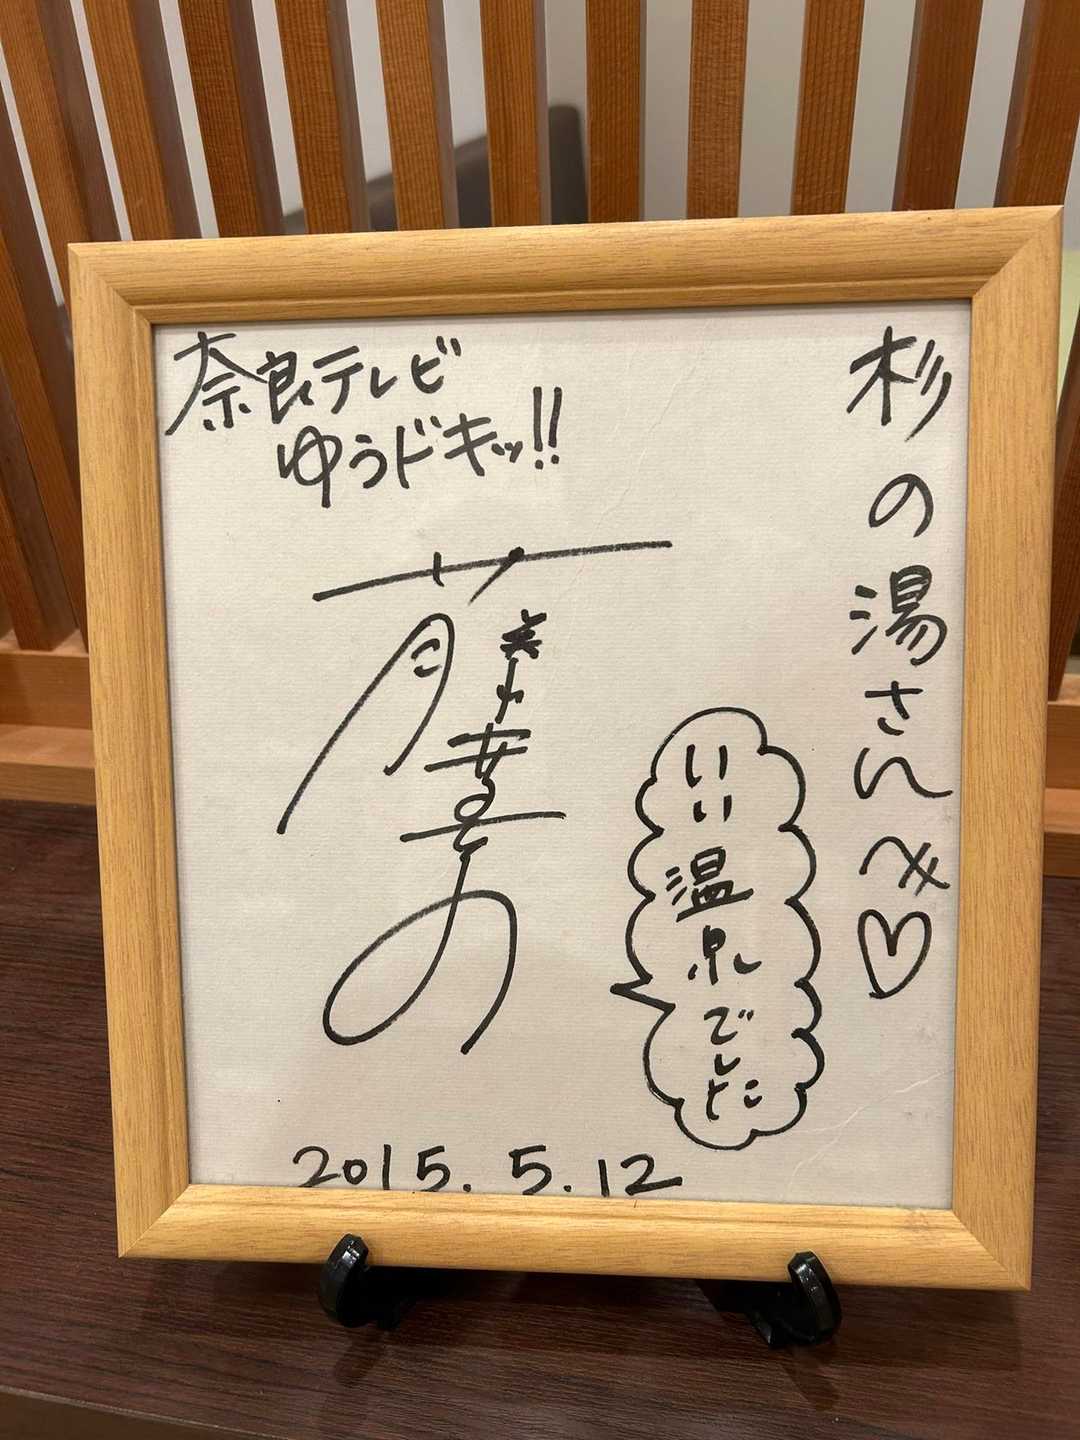 杉の湯さんへ♡
奈良テレビ
ゆうドキッ!!
いい温泉でした
2015.5.12